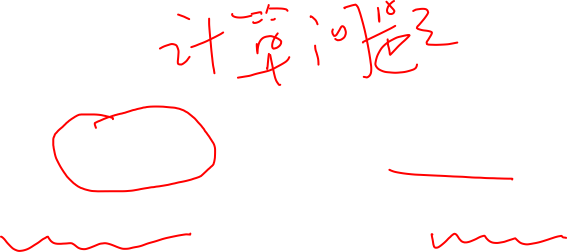 计算问题